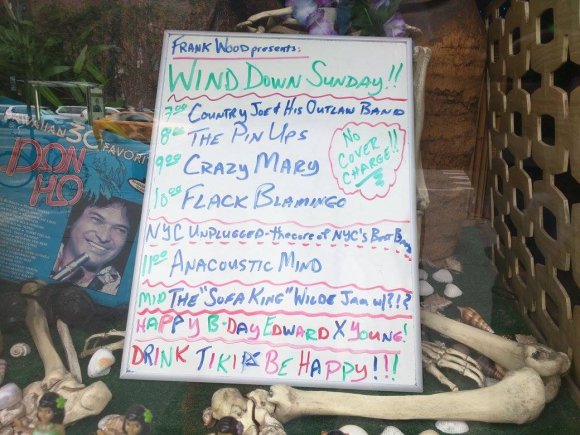 FRANK WOOD presents:
WIND DOWN SUNDAY!!
7:00 COUNTRY JOE & HIS OUTLAW BAND
8:00 THE PIN UPS
9:00 CRAZY MARY
10:00 FLACK BLAMINGO
NO
COVER
CHARGE!!
NYC UNPLUGGED - the core of NYC's Best
11:00 ANACOUSTIC MIND
MID THE "SOFA KING" WILDE JAM w/?!?
HAPPY B-DAY EDWARD X YOUNG!
DRINK TIKI & BE HAPPY!!!
HAWAIIAN FAVORI
30
DON
HO